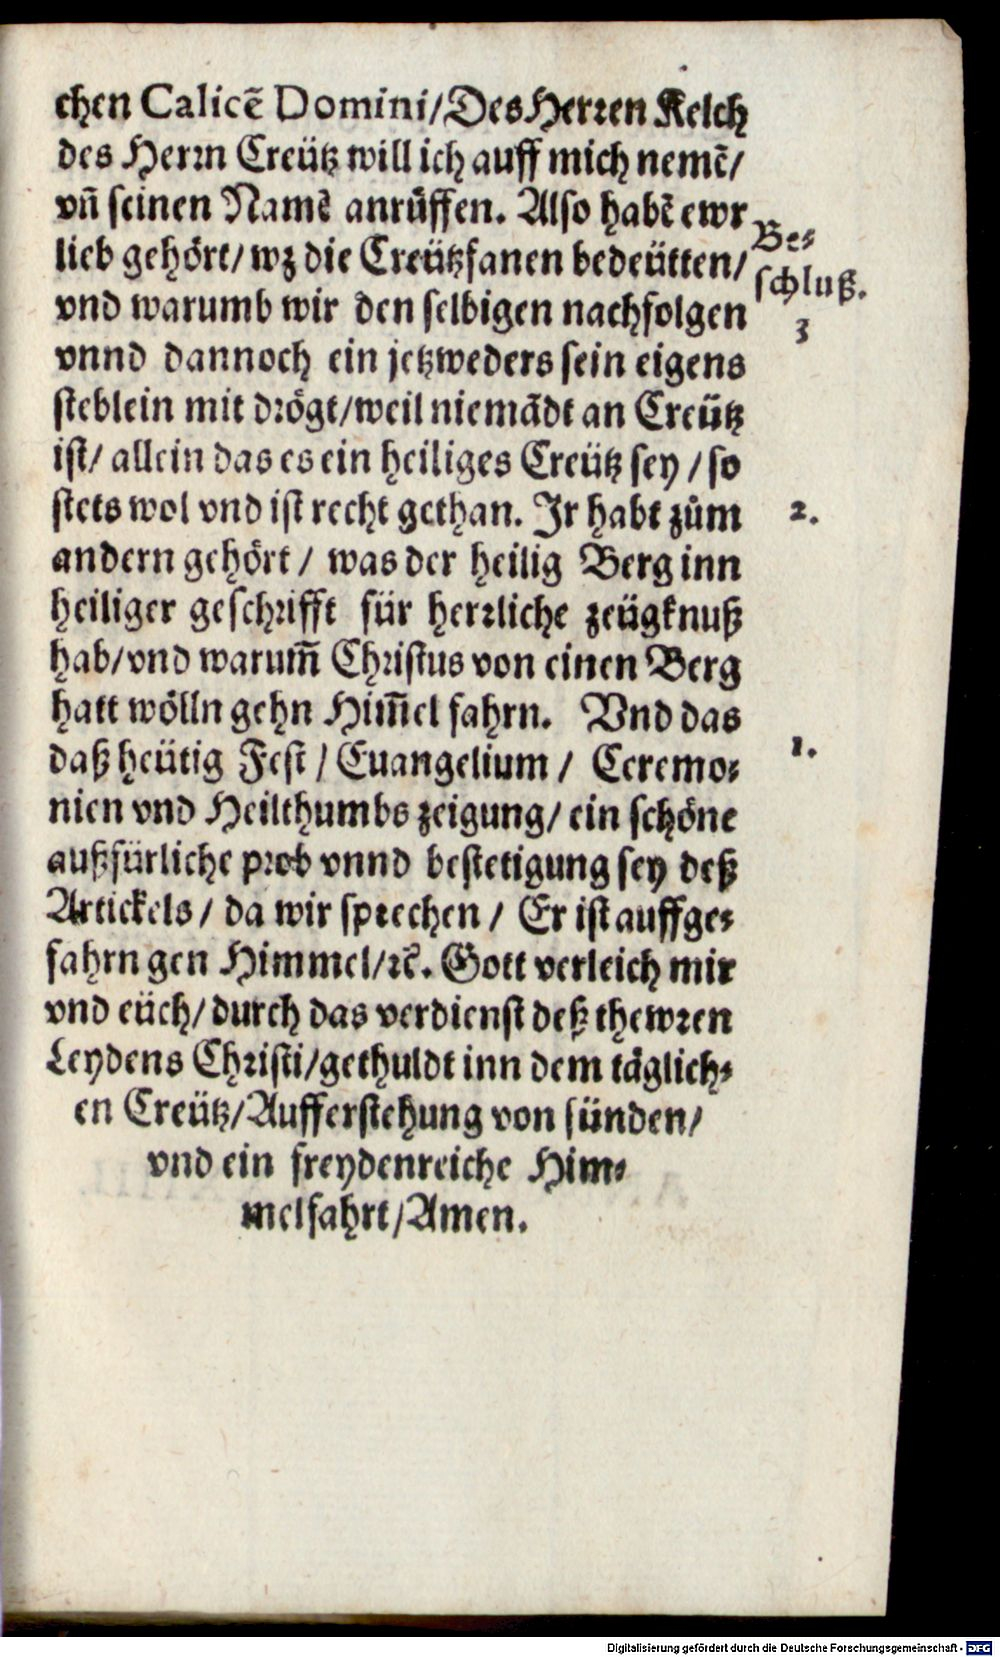 chen Calicē Domini/Des Herren Kelch
des Herrn Creütz will ich auff mich nemē/
vñ seinen Namē anrüffen. Also habē ewr
lieb gehört/ wz die Creützfanen bedeütten/
Be-
schluß.
3
vnd warumb wir den selbigen nachfolgen
vnnd dannoch ein jetzweders sein eigens
steblein mit drögt/weil niemādt an Creütz
ist/ allein das es ein heiliges Creütz sey / so
stets wol vnd ist recht gethan. Ir habt zům
2.
andern gehört / was der heilig Berg inn
heiliger geschrifft für herrliche zeügknuß
hab/vnd warum̄ Christus von einen Berg
hatt wölln gehn Him̄el fahrn. Vnd das
daß heütig Fest / Euangelium / Ceremo-
1.
nien vnd Heilthumbs zeigung/ ein schöne
außfürliche prob vnnd bestetigung sey deß
Artickels / da wir sprechen / Er ist auffge-
fahrn gen Himmel/ꝛc̄. Gott verleich mir
vnd eüch/ durch das verdienst deß thewren
Leydens Christi/gethuldt inn dem täglich-
en Creütz/Aufferstehung von sünden/
vnd ein freydenreiche Him-
melfahrt/Amen.
Digitalisierung gefördert durch die Deutsche Forschungsgemeinschaft - DFG